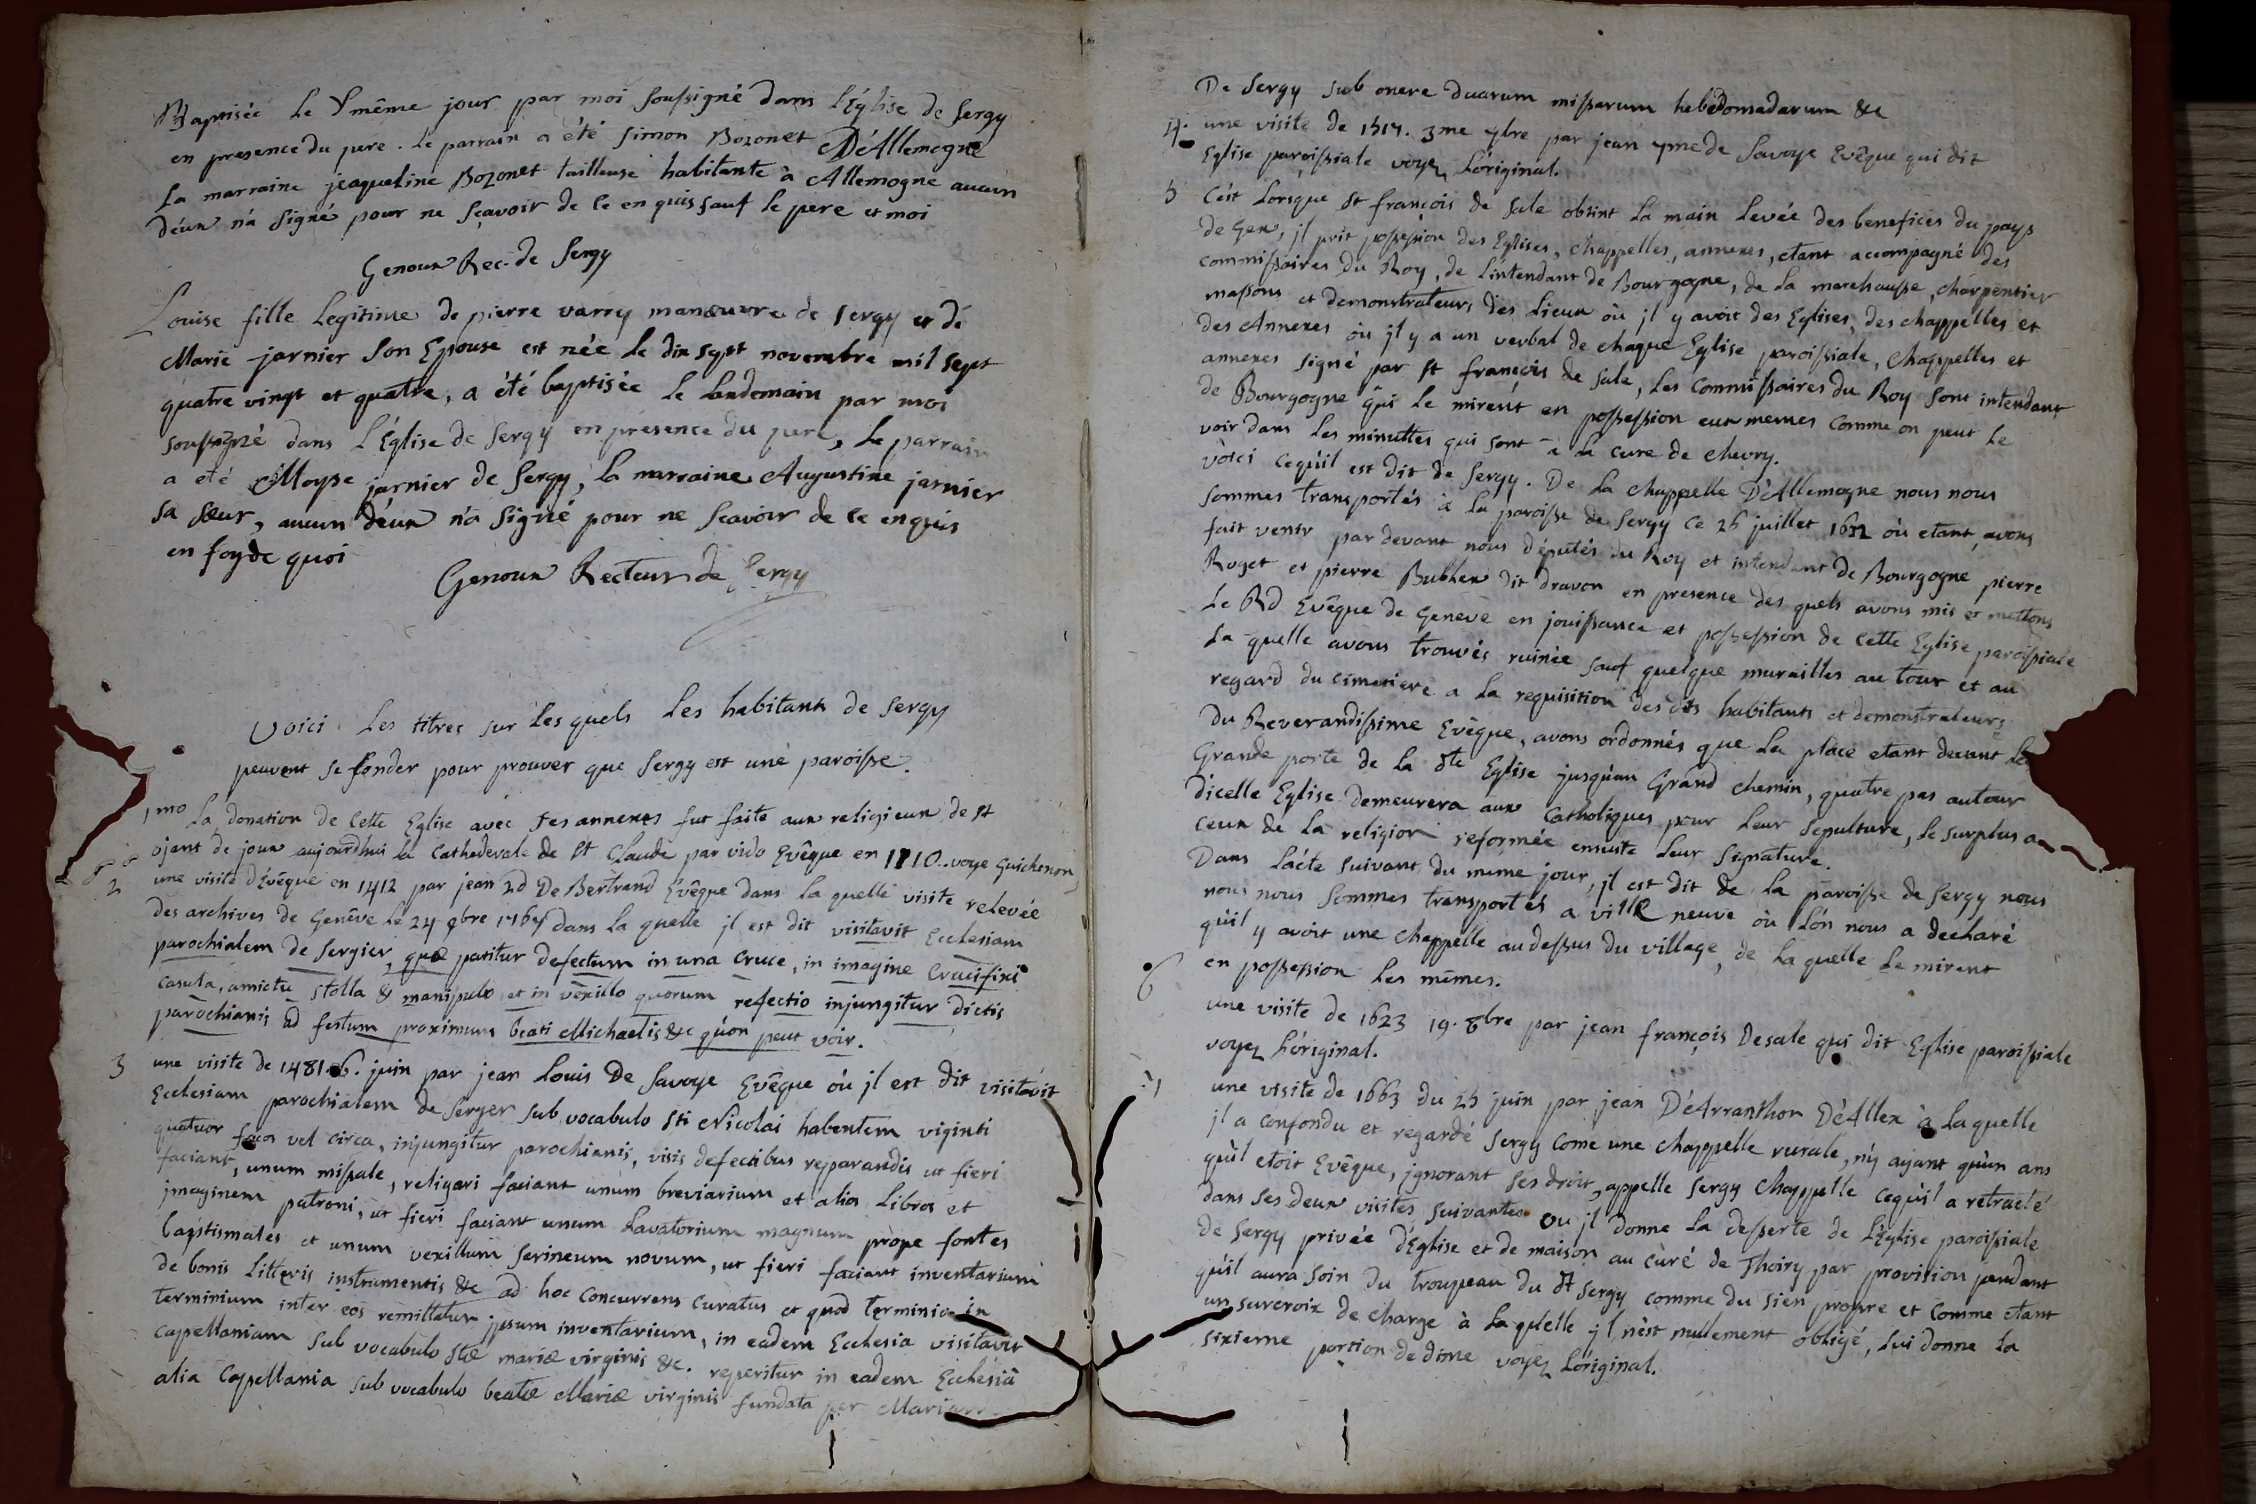 Baptisée le même jour par moi soussigné dans l'Église de Sergy
en presence du pere. Le parrain a été Simon Bozonet D'Allemogne
la marraine jeaqueline Bozonet tailleuse habitante à Allemogne aucun
d'eux n'a signé pour ne sçavoir de ce enquis sauf le pere et moi
Genoux Rec. de Sergy
Louise fille Legitime de pierre varry manœuvre de Sergy et de
Marie jarnier son Epouse est née le dix sept novembre mil sept
quatre vingt et quatre, a été baptisée le landemain par moi
soussigné dans l'Église de Sergy en présence du pere, le parrain
a été Moyse jarnier de Sergy, la marraine Augustine jarnier
sa sœur, aucun d'eux n'a signé pour ne scavoir de ce enquis
en foy de quoi
Genoux Recteur de Sergy
Voici Les titres sur les quels les habitants de Sergy
peuvent se fonder pour prouver que Sergy est une paroisse.
1mo La donation de cette Eglise avec ses annexes fut faite aux religieux de st
ojant de joux aujourdhui la Cathedevale de St Claude par vido Evêque en 1110. voye Guichenon
2 une visite d'Evêque en 1412 par jean 2d De Bertrand Evêque dans la quelle visite relevée
des archives de Genêve le 24 9bre 1767 dans la quelle il est dit visitavit Ecclesiam
parochialem de Sergier, quæ patitur defectum in una Cruce, in imagine Crucifixi
casula, amictu stolla & manipulo et in vexillo quorum refectio injungitur dictis
parochianis ad festum proximum beati Michaelis &c qu'on peut voir.
3 une visite de 1481. 6. juin par jean Louis De Savoye Evêque où il est dit visitavit
Ecclesiam parochialem de Serger sub vocabulo Sti Nicolai habentem viginti
quatuor focos vel circa, injungitur parochianis, visis defectibus reparandis ut fieri
faciant, unum missale, religari faciant unum breviarium et alios Libros et
jmaginem patroni, ut fieri faciant unum Lavatorium magnum prope fontes
baptismales et unum vexillum serineum novum, ut fieri faciant inventarium
de bonis Litteris instrumentis &c ad hoc concurrens curatus et quod terminio in
terminium inter eos remittatur ipsum inventarium, in eadem Ecclesia visitavit
capellaniam sub vocabulo Stæ mariæ virginis &c. reperitur in eadem Ecclesiâ
alia Capellania sub vocabulo beatæ Mariæ virginis fundata per
De Sergy sub onere duarum missarum hebdomadarum &c
4. une visite de 1517. 3me 9bre par jean de Savoye Evêque qui dit
Eglise paroissiale voyez L'original.
5 C'est Lorsque St françois de Sale obtint La main levée des benefices du pays
de Gex, il prit possession des Eglises, chappelles, annexes, etant accompagné des
commissaires du Roy, de L'intendant de Bourgogne, de la marechausse, charpentier
massons et demonstrateurs des Lieux où il y avoit des Eglises, des chappelles et
des Annexes où il y a un verbal de chaque Eglise paroissiale, Chappelles et
annexes signé par St françois de Sale, Les Commissaires du Roy sont intendant
de Bourgogne qui le mirent en possession eux memes comme on peut le
voir dans les minuttes qui sont à la cure de chevry.
voici cequ'il est dit de Sergy. De La chappelle D'Allemogne nous nous
sommes transportés à La paroisse de Sergy ce 26 juillet 1612 où etant, avons
fait venir par devant nous députés du Roy et intendant de Bourgogne pierre
Roget et pierre Bubler dit dravon en presence des quels avons mis et mettons
le Rd Evêque de Geneve en jouissance et possession de cette Eglise paroissiale
la quelle avons trouvés ruinée sauf quelque murailles au tour et au
regard du cimetiere a la requisition des dits habitants et demonstrateurs
du Reverandissime Evêque, avons ordonnés que La place etant devant la
Grande porte de la dte Eglise jusqu'au Grand chemin, quatre pas autour
d'icelle Eglise demeurera aux Catholiques pour Leur sepulture, le surplus a
ceux de La religion reformée ensuite Leur signature.
Dans L'acte suivant du mume jour, il est dit de la paroisse de Sergy nous
nous nous sommes transportés a ville neuve où L'on nous a declaré
qu'il y avoit une Chappelle audessus du village, de laquelle Le mirent
en possession Les mêmes.
6 une visite de 1623 19. 8bre par jean françois Desale qui dit Eglise paroissiale
voyez L'original.
7 une visite de 1663 du 25 juin par jean D'Arranthon D'Allex à laquelle
il a confondu et regardé Sergy Come une chappelle rurale, n'y ayant qu'un ans
qu'il etoit Evêque, ignorant ses droit, appelle Sergy Chappelle cequ'il a retracté
dans ses deux visites suivantes ou il donne La desserte de L'Eglise paroissiale
de Sergy privée d'Eglise et de maison au curé de Thoiry par provision pandant
qu'il aura soin du troupeau du dt Sergy comme du sien propre et Comme etant
un surcroix de charge à La quelle il n'est nullement obligé, lui donne la
sixieme portion de dime voyez L'original.